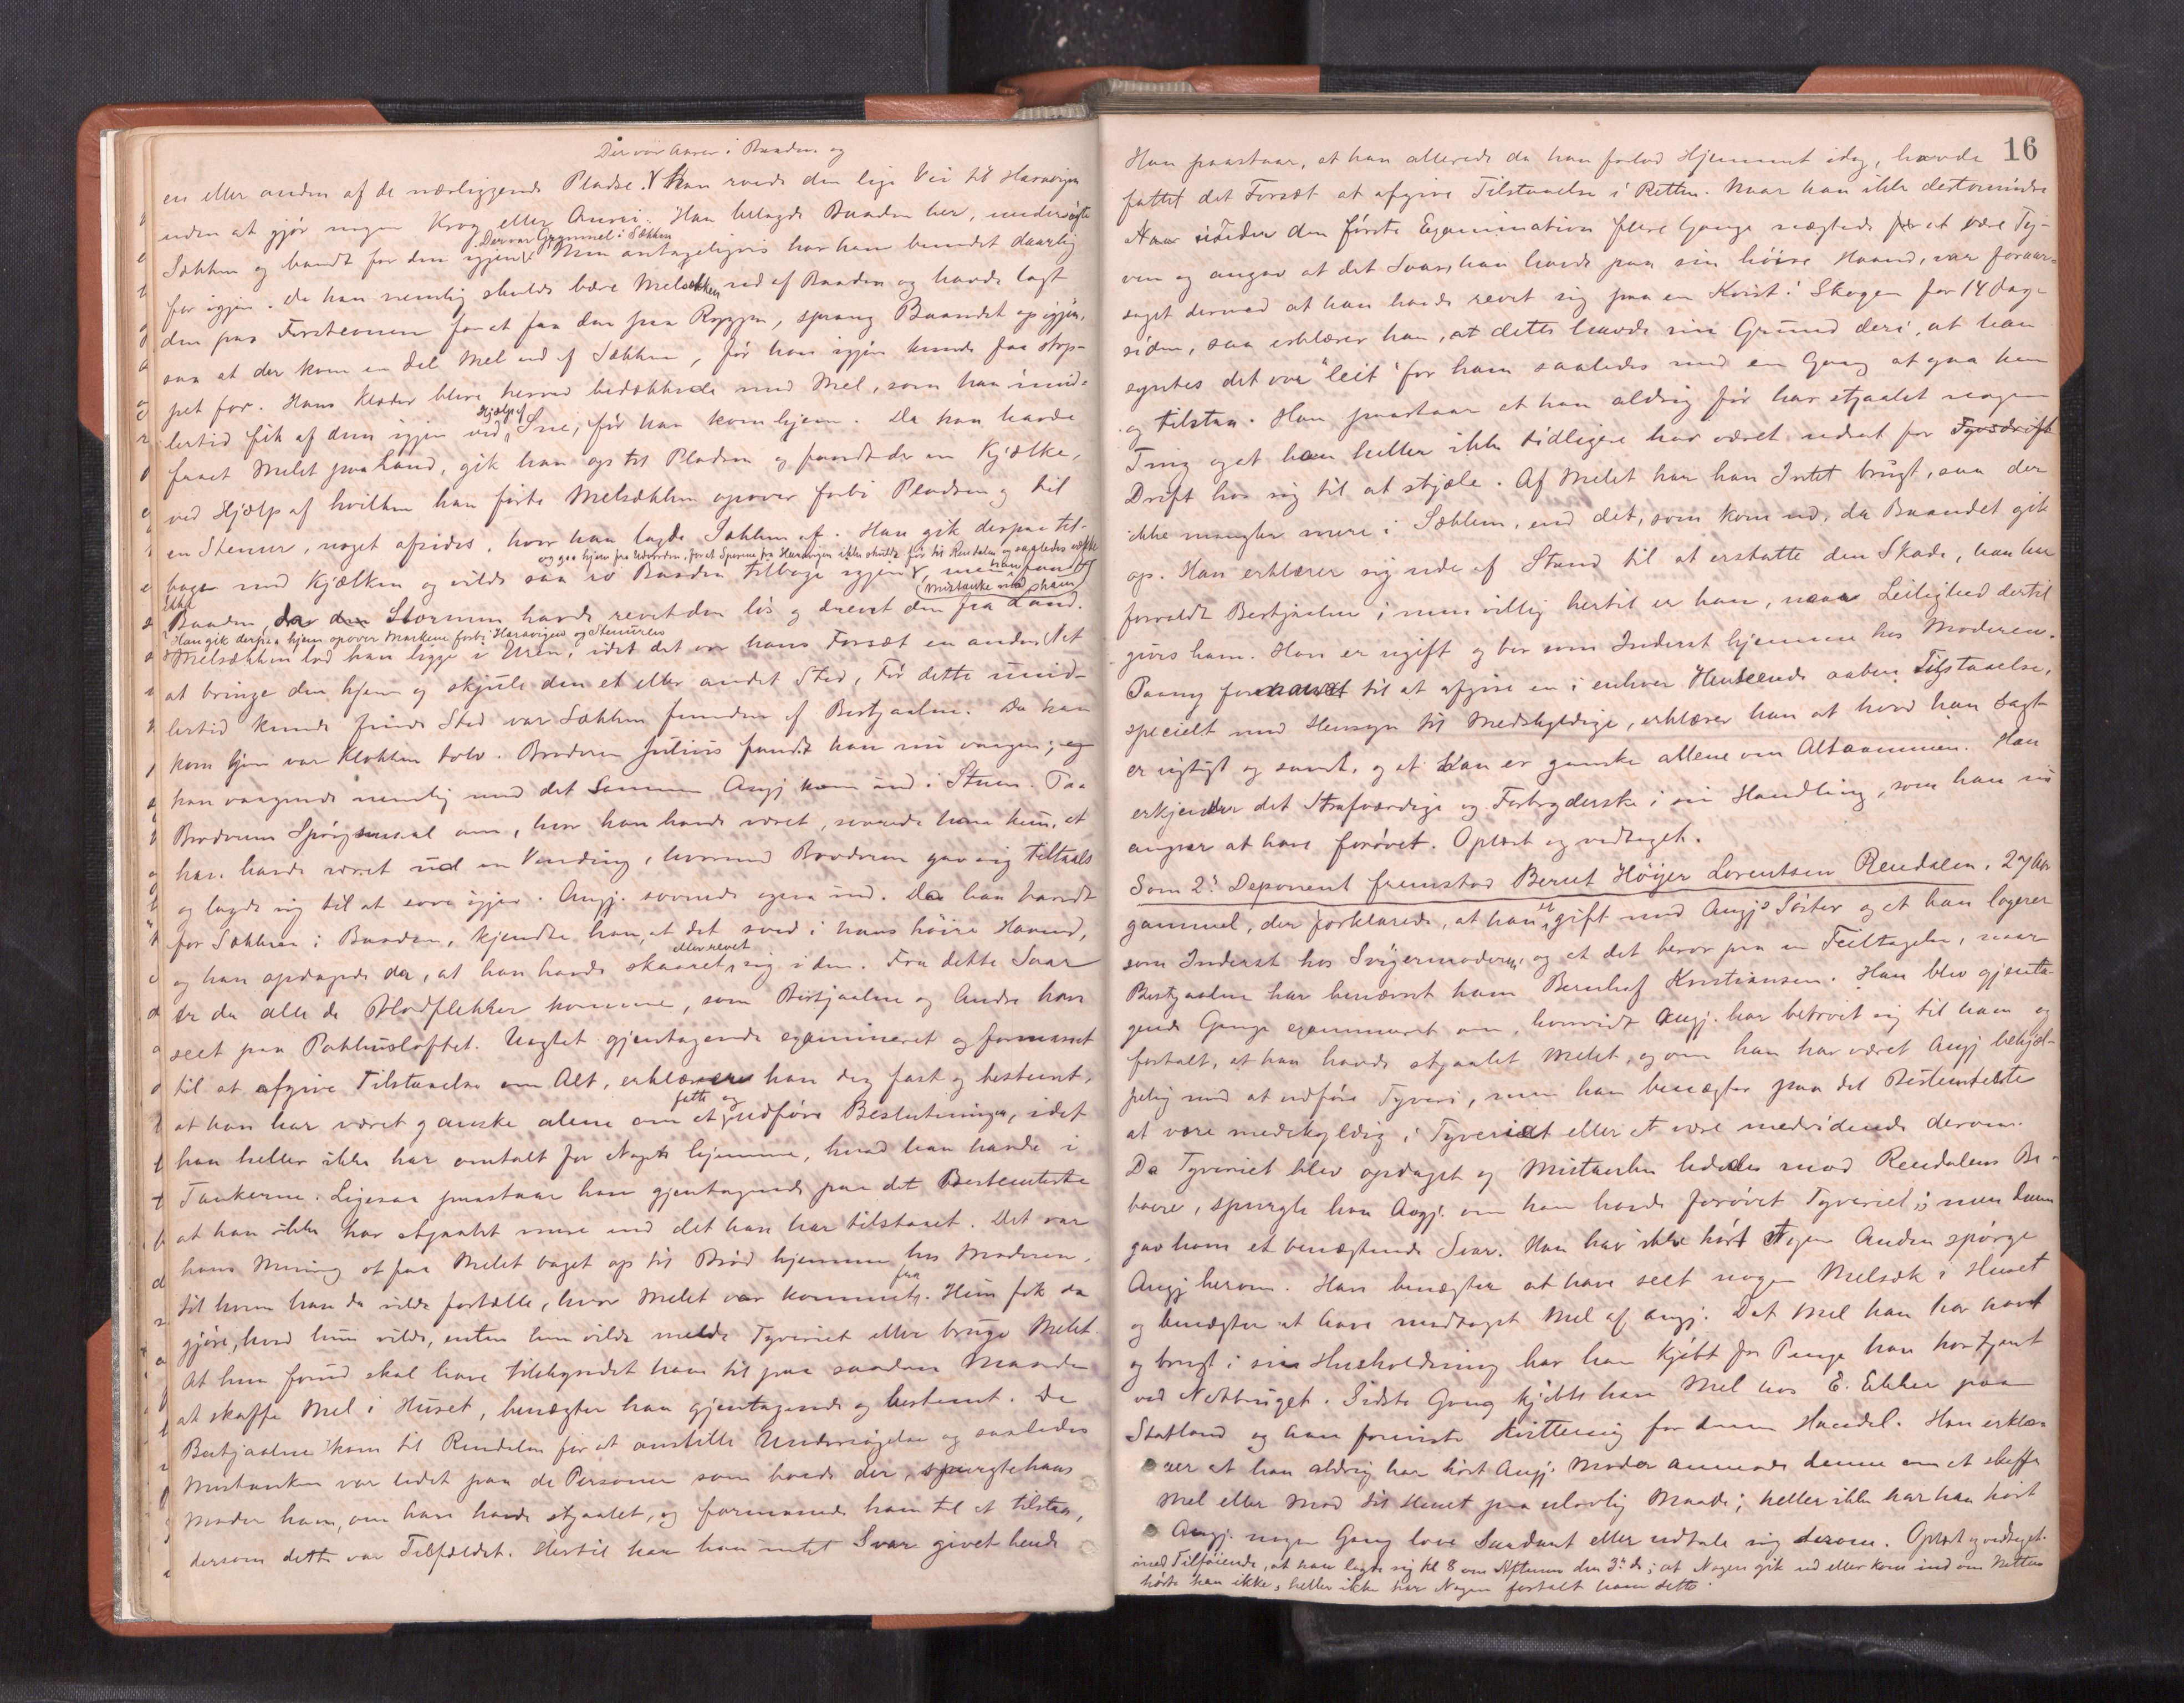 Der var Aarer i Baaden og
en eller anden af de nærliggende Pladse. Han roede den lige Vei til Haravigen
uden at gjøre nogen Krog eller Omvei. Han belagde Baaden her, undersøgte
Der var Grynmel i Sækken
Sækken og bandt for den igjen. Men antageligvis har han bundet daarlig
for igjen. Da han nemlig skulde bære Melsækken ud af Baaden og havde lagt
den paa Forstevnen for at faa den paa Ryggen, sprang Baandet op igjen,
saa at der kom en Del Mel ud af Sækken, før han igjen kunde faa stop-
pet for. Hans Klæder bleve herved bedækkede med Mel, som han imid-
lertid fik af dem igjen ved Hjælp af Sne, før han kom hjem. Da han havde
faaet Melet paa Land, gik han op til Pladsen og fandt der en Kjælke,
ved Hjælp af hvilken han førte Melsækken opover forbi Pladsen og til
en Stenur, noget afsides, hvor han lagde Sækken af. Han gik derpaa til-
og gaa hjem fra Udvorden, for at Sporene fra Haravigen ikke skulde føre til Rendalen og saaledes vække
bage med Kjælken og vilde saa ro Baaden tilbage igjen, men han fandt
(Mistanke mod ham)
ikke
Baaden, da Stormen havde revet den løs og drevet den fra Land.
Han gik derpaa hjem opover Markene forbi Haravigen og Stenuren
Melsækken lod han ligge i Uren, idet det var hans Forsæt en anden Nat
at bringe den hjem og skjule den et eller andet Sted, Før dette imid-
lertid kunde finde Sted var Sækken funden af Bestjaalne. Da han
kom hjem var Klokken tolv. Broderen Julius fandt han nu vaagen, og
han vaagnede nemlig med det Samme Angj kom ind i Stuen. Paa
Broderens Spørgsmaal om, hvor han havde været, svarede han kun, at
han havde været ud en Vending, hvormed Broderen gav sig tiltaals
og lagde sig til at sove igjen. Angj. sovnede ogsaa ind. Da han bandt
for Sækken i Baaden, kjendte han, at det sved i hans høire Haand,
og han opdagede da, at han havde skaaret eller revet sig i den. Fra dette Saar
er da alle de Blodflekker komne, som Bestjaalne og Andre have
seet paa Pakhusloftet. Uagtet gjentagende examineret og formanet
til at afgive Tilstaaelse om Alt, erklærer han dog fast og bestemt,
at han har været ganske alene om at fatte og udføre Beslutningen, idet
han heller ikke har omtalt for Nogen hjemme, hvad han havde i
Tankerne. Ligesaa paastaar han gjentagende paa det Bestemteste
at han ikke har stjaalet mere end det han har tilstaaet. Det var
hans Mening at faa Melet baget op til Brød hjemme hos Moderen,
til hvem han da vilde fortælle, hvor Melet var kommet fra. Hun fik da
gjøre, hvad hun vilde, enten hun vilde melde Tyveriet eller bruge Melet.
At hun forud skal have tilskyndet ham til paa saadan Maade
at skaffe Mel i Huset, benægter han gjentagende og bestemt. Da
Bestjaalne kom til Rendalen for at anstille Undersøgelse og saaledes
Mistanken var ledet paa de Personer som boede der, spurgte hans
Moder ham, om han havde stjaalet, og formanede ham til at tilstaa,
dersom dette var Tilfældet. Hertil har han intet Svar givet hende
16
Han paastaar, at han allerede da han forlod Hjemmet idag, havde
fattet det Forsæt at afgive Tilstaaelse i Retten. Naar han ikke destomindre
under den første Examination flere Gange nægtede at være Ty-
ven og angav at det Saar, han havde paa sin høire Haand, var foraar-
saget derved at han havde revet sig paa en Kvist i Skogen for 14 Dage
siden, saa erklærer han, at dette havde sin Grund deri, at han
syntes det var "leit" for ham saaledes med en Gang at gaa hen
og tilstaa. Han paastaar at han aldrig før har stjaalet nogen
Ting og at han heller ikke tidligere har været udsat for Tyvsdrift
Drift hos sig til at stjæle. Af Melet har han Intet brugt, saa der
ikke mangler mere i Sækken, end det, som kom ud, da Baandet gik
op. Han erklærer sig ude af Stand til at erstatte den Skade, han har
forvoldt Bestjaalne, men villig hertil er han, naar Leilighed dertil
gives ham. Han er ugift og bor som Inderst hjemme hos Moderen.
Paany formanet til at afgive en i enhver Henseende aaben Tilstaaelse,
specielt med Hensyn til Medskyldige, erklærer han at hvad han har sagt
er rigtigt og sandt, og at han er ganske allene om Altsammen. Han
erkjender det Strafværdige og Forbryderske i sin Handling, som han nu
angrer at have forøvet. Oplæst og vedtaget.
Som 2n Deponent fremstod Bernt Høyer Lorentsen Rendalen, 27 Aar
gammel, der forklarede, at han er gift med Angjs Søster og at han logerer
som Inderst hos Svigermoderen, og at det beror paa en Feiltagelse, naar
Bestjaalne har benævnt ham Bernhof Kristiansen. Han blev gjenta-
gende Gange examineret om, hvorvidt Angj. har betroet sig til ham og
fortalt, at han havde stjaalet Melet, og om han har været Angj behjel-
pelig med at udføre Tyveri, men han benægter paa det Bestemteste
at være medskyldig i Tyveriet eller at være medvidende derom.
Da Tyveriet blev opdaget og Mistanken lededes mod Rendalens Be-
boere, spurgte han Angj. om han havde forøvet Tyveriet; men denne
gav ham et benægtende Svar. Han har ikke hørt Nogen Anden spørge
Angj herom. Han benægter at have seet nogen Melsæk i Huset
og benægter at have modtaget Mel af Angj. Det Mel han har havt
og brugt i sin Husholdning har han kjøbt for Penge han har tjent
ved Notbruget. Sidste Gang kjøbte han Mel hos E. Ekker paa
Statland og han foreviste Kvittering for denne Handel. Han erklæ-
rer at han aldrig har hørt Angj. Moder anmode denne om at skaffe
Mel eller Mad til Huset paa ulovlig Maade; heller ikke har han hørt
Angj. nogen Gang love Saadant eller udtale sig derom. Oplæst og vedtaget.
med Tilføiende, at han lagde sig Kl 8 om Aftenen den 3n ds; at Nogen gik ud eller kom ind om Natten
hørte han ikke, heller ikke har Nogen fortalt ham dette.